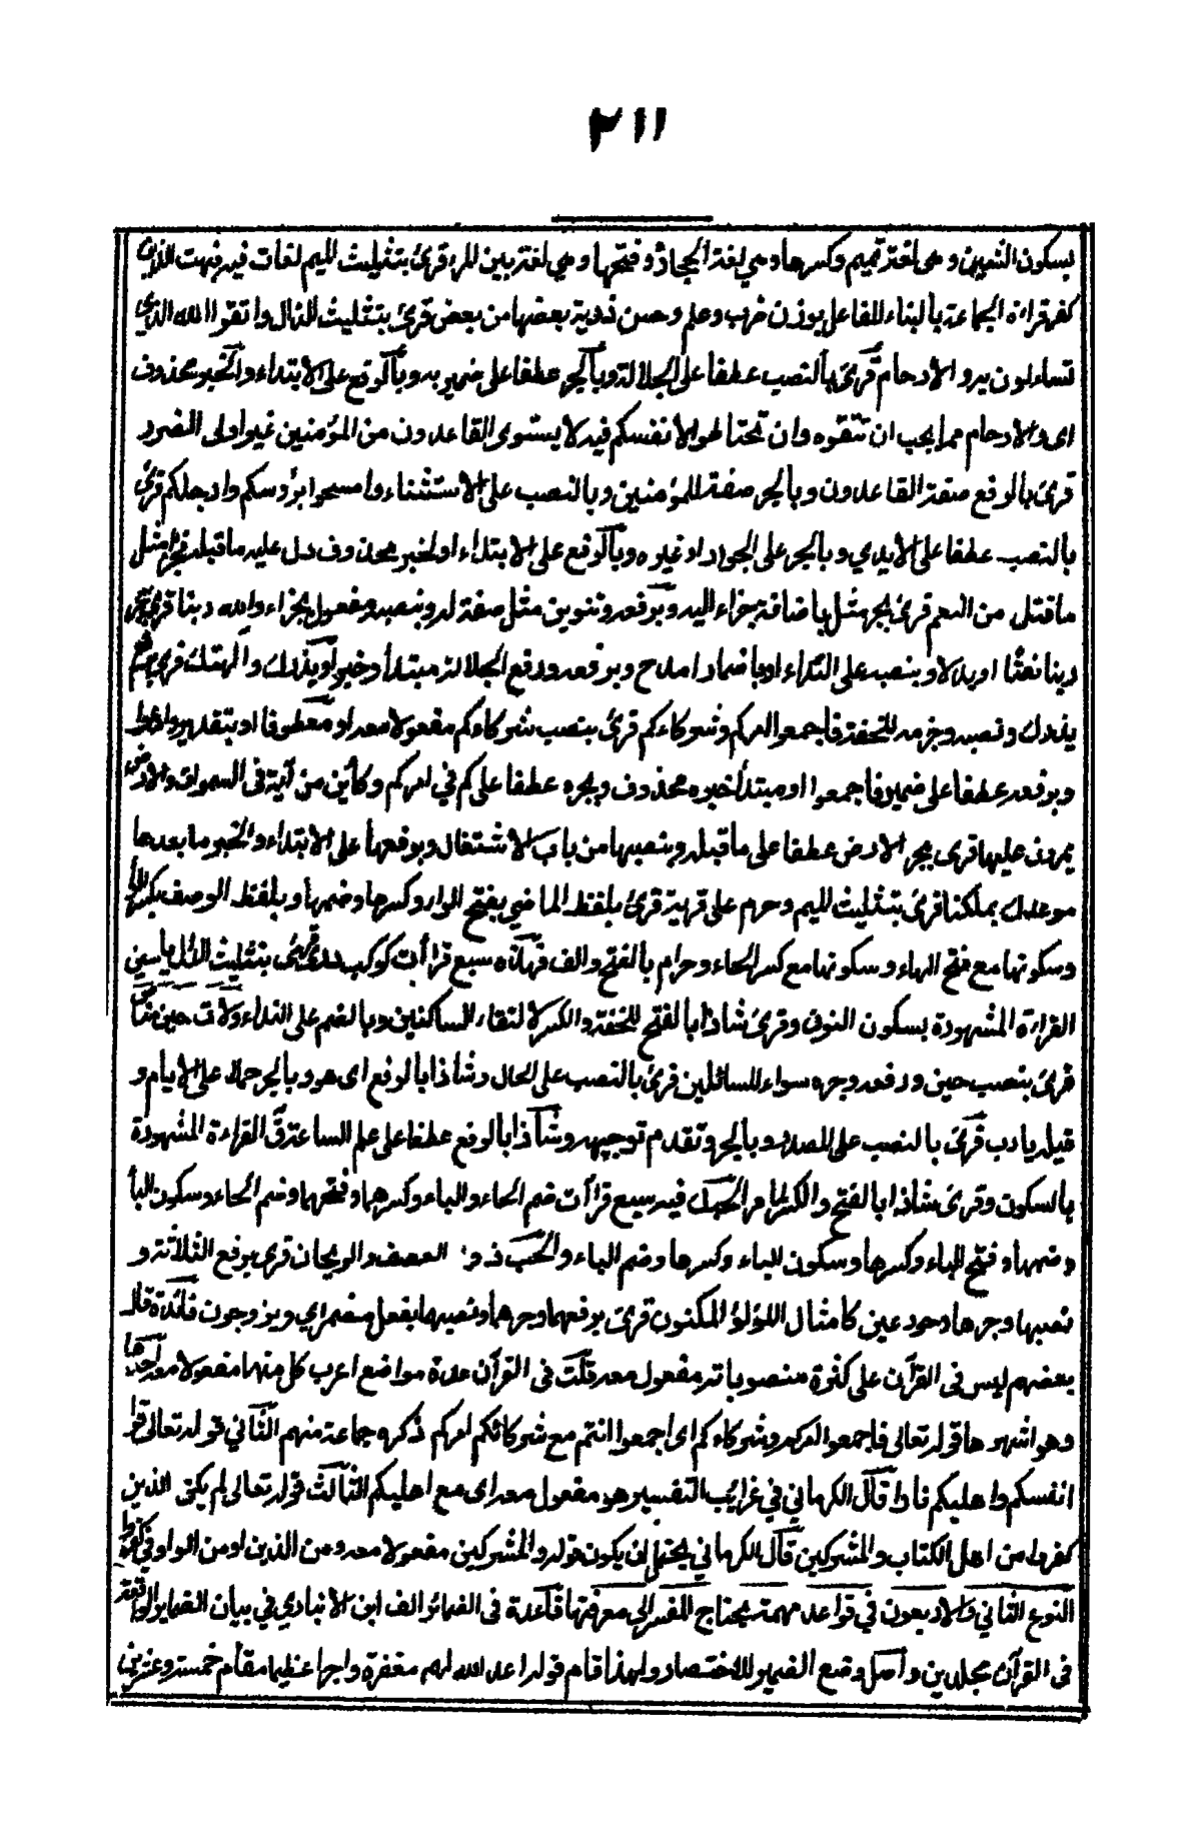 ٢١١
بسكون الشين وهى لغة تميم وكسرها وهي لغة الحجاز وفتحها وهي لغة بين المرء قرئ بتثليث الميم لغات فيه فبهت الذي
كفر قراءة الجماعة بالبناء للفاعل بوزن ضرب وعلم وحسن ذرية بعضها من بعض قرئ بتثليث الذال واتقوا الله الذي
تساءلون به والأرحام قرئ بالنصب عطفا على الجلالة وبالجر عطفا على ضمير به وبالرفع على الابتداء والخبر محذوف
اى والارحام مما يجب ان تتقوه وان تحتاطوا لانفسكم فيه لا يستوى القاعدون من المؤمنين غير اولى الضرر
قرئ بالرفع صفة القاعدون وبالجر صفة للمؤمنين وبالنصب على الاستثناء وامسحوا برؤسكم وارجلكم قرئ
بالنصب عطفا على الايدي وبالجر على الجوار او غيره وبالرفع على الابتداء والخبر محذوف دل عليه ما قبله فجزاء مثل
ما قتل من النعم قرئ بجر مثل باضافة جزاء اليه وبرفعه وتنوين مثل صفة له وبنصبه مفعول بجزاء والله ربنا قرئ بجر
ربنا نعتا او بدلا وبنصبه على النداء او باضمار امدح وبرفعه ورفع الجلالة مبتدأ وخبر ويذرك وآلهتك قرئ برفع
يذرك ونصبه وجزمه للخفة فاجمعوا امركم وشركاءكم قرئ بنصب شركاءكم مفعولا معه او معطوفا او بتقدير وادعوا
وبرفعه عطفا على ضمير فاجمعوا او مبتدأ خبره محذوف وبجره عطفا على كم في امركم وكأين من آية فى السموات والارض
يمرون عليها قرئ بجر الارض عطفا على ما قبله وبنصبها من باب الاشتغال وبرفعها على الابتداء والخبر ما بعدها
موعدك بملكنا قرئ بتثليث الميم وحرم على قرية قرئ بلفظ الماضي بفتح الراء وكسرها وضمها وبلفظ الوصف بكسر الراء
وسكونها مع فتح الحاء وسكونها مع كسر الحاء وحرام بالفتح والف فهذه سبع قرأات كوكب درى قرئ بتثليث الدال يٰسين
القراءة المشهورة بسكون النون وقرئ شاذا بالفتح للخفة والكسر لالتقاء الساكنين وبالضم على النداء ولات حين مناص
قرئ بنصب حين ورفعه وجره سواء للسائلين قرئ بالنصب على الحال وشاذا بالرفع اى هو وبالجر حملا على الايام و
قيله يارب قرئ بالنصب على المصدر وبالجر وتقدم توجيهه وشاذا بالرفع عطفا على علم الساعة ق القراءة المشهورة
بالسكون وقرئ شاذا بالفتح والكسر لما مر الحبك فيه سبع قرأات ضم الحاء والباء وكسرهما وفتحهما وضم الحاء وسكون البا
وضمها وفتح الباء وكسرها وسكون الباء وكسرها وضم الباء والحب ذو العصف والريحان قرئ برفع الثلاثة و
نصبها وجرها وحور عين كامثال اللؤلؤ المكنون قرئ برفعهما وجرهما ونصبهما بفعل مضمر اي ويزوجون فائدة قال
بعضهم ليس فى القرآن على كثرة منصوباته مفعول معه قلت فى القرآن عدة مواضع اعرب كل منها مفعولا معه احدها
وهو اشهرها قوله تعالى فاجمعوا امركم وشركاءكم اى اجمعوا انتم مع شركائكم امركم ذكره جماعة منهم الثاني قوله تعالى قوا
انفسكم واهليكم نارا قال الكرماني في غرائب التفسير هو مفعول معه اى مع اهليكم الثالث قوله تعالى لم يكن الذين
كفروا من اهل الكتاب والمشركين قال الكرماني يحتمل ان يكون قوله والمشركين مفعولا معه من الذين او من الواو في كفروا
النوع الثاني والاربعون في قواعد مهمة يحتاج المفسر الى معرفتها قاعدة فى الضمائر الف ابن الانباري في بيان الضمائر الواقعة
فى القرآن مجلدين واصل وضع الضمير للاختصار ولهذا قام قوله اعد الله لهم مغفرة واجرا عظيما مقام خمسة وعشرين